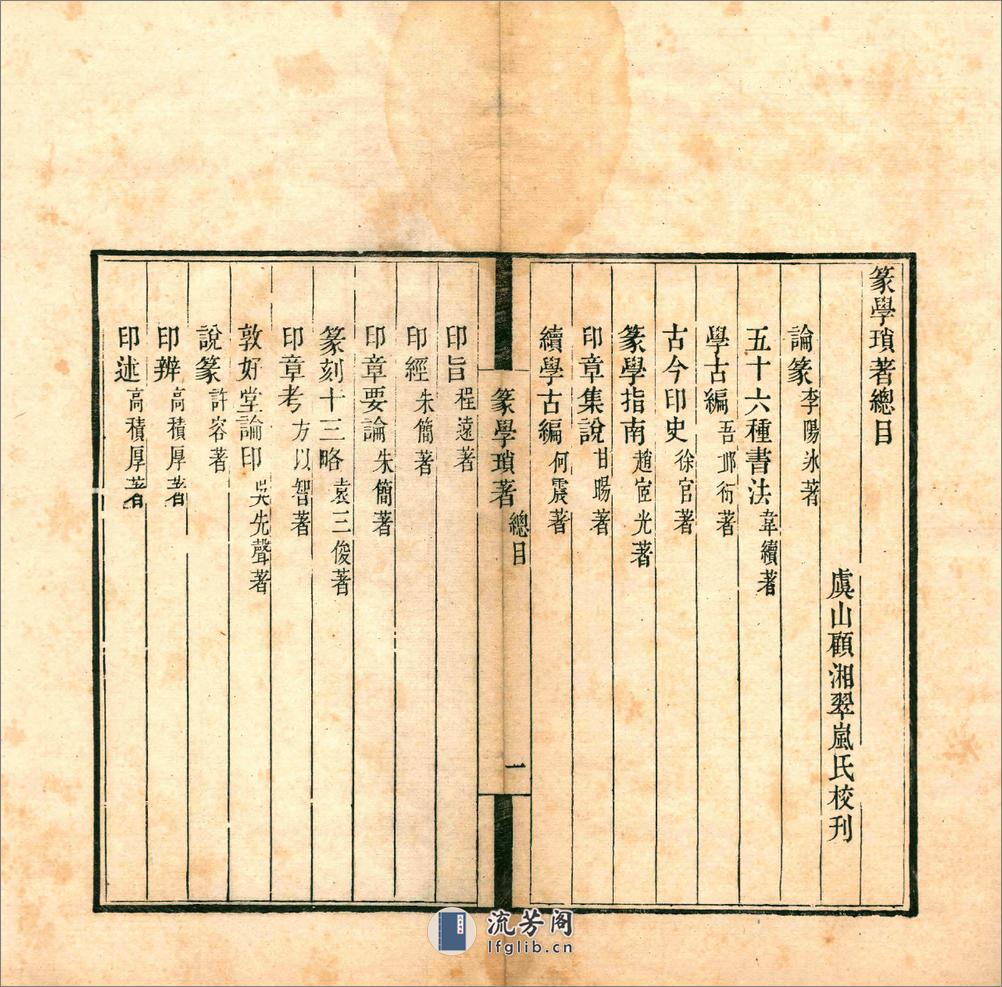 篆學瑣著總目
虞山顧湘翠嵐氏校刊
論篆李陽冰著
五十六種書法韋續著
學古編吾邱衍著
古今印史徐官著
篆學指南趙宧光著
印章集說甘暘著
續學古編何震著
篆學瑣著 總目 一
印旨程遠著
印經朱簡著
印章要論朱簡著
篆刻十三略袁三俊著
印章考方以智著
敦好堂論印吳先聲著
說篆許容著
印辨高積厚著
印述高積厚著
流芳阁
lfglib.cn